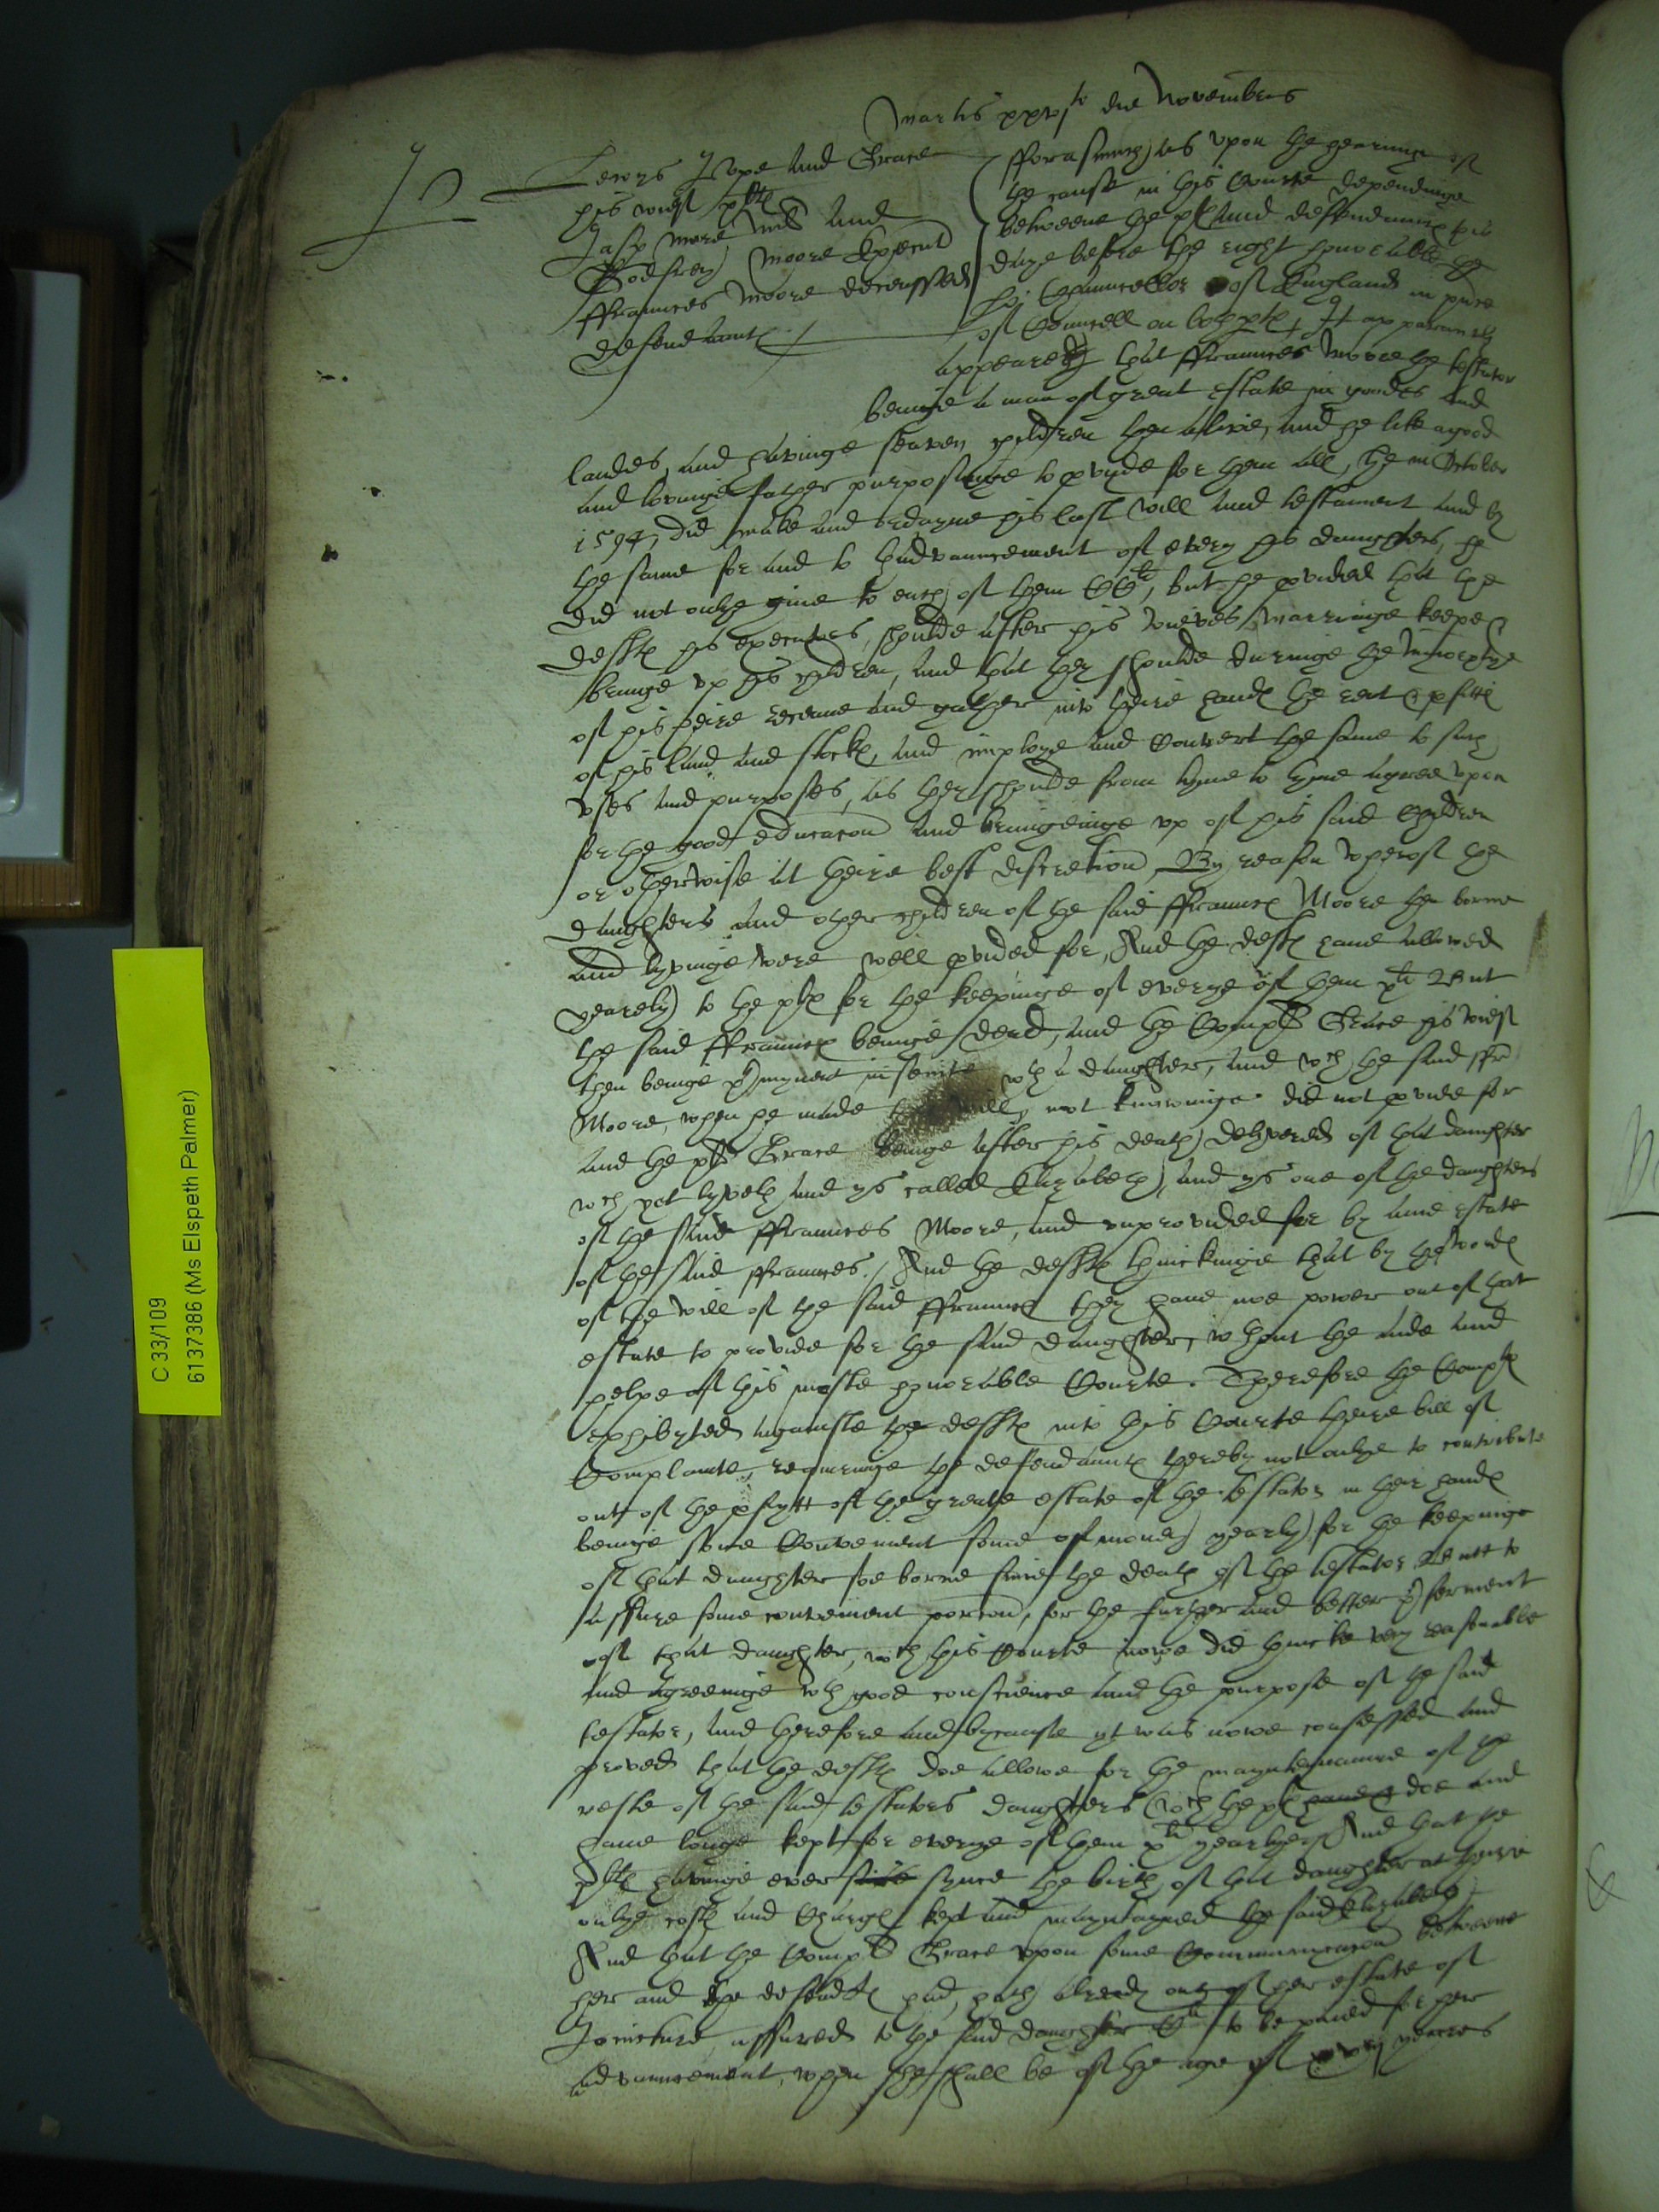 Martis xxvj^to die Novembris
Lewys Pope and Grace
his wief pltes
Jasp More and
Godfrey Moore Execut
Fraunces Moore deceassed
defendantes
fforasmuch as upon the hearinge of
the cause in this Courte dependinge
betweene the pl and deffendauntes this
daye before the right honorable the
Lo: Chauncellor of England in pnce
of Councell on both ptes It apparantly
appeareth that ffraunces Moore the testator
beinge a man of great estate in goodes and
landes, and havinge seaven children then alive, and he like a good
and lovinge father purposinge to pvyde for them all, He in October
1594, did make and ordayne his last will and testament and by
the same for and to thadvauncement of every his daughters, he
did not onlye give to each of them CC^li, but he pvided that the
deftes his executors, shoulde after his wieves marriage keepe &
bringe up his children, and that they shoulde duringe the mynorytye
of his heire receave and gather into theire handes the rent & pfittes
of his land and stocke, and imploye and Convert the same to such
uses and purposes, as they shoulde from tyme to tyme agree upon
for the good educacon and bringeinge up of his said Children
or otherwise at theire best discretion, By reason wherof the
daughters and other children of the said ffraunces Moore then borne
and lyvinge were well pvided for, And the deftes have allowed
yearely to the pltes for the keepinge of everye of them x^li But
the said ffraunces beinge dead, and the Compl Grace his wief
then beinge pryvment insente wth a daughter, and wch the said ffr
Moore, when he made will, not knowinge did not pvide for
and the pl Grace beinge after his death delyvered of that daughter
wch yet lyveth and ys called Elizabeth, and ys one of the daughters
of the said ffraunces Moore, and unprovided for by anie estate
of the said ffraunces. And the deftes thinckinge that by the wordes
of the will of the said ffraunces they have noe power out of that
estate to provide for the said daughter, wthout the aide and
helpe of this moste honorable Courte. Therefore the Compltes
exhibyted againste the deftes into this Courte theire bill of
Complainte, requiringe the defendauntes thereby not onlye to contribute
out of the pfytt of the greate estate of the testator in their handes
beinge some Convenient some of money yearly for the keepinge
of that daughter soe borne since the death of the testator But to
assure some convenient porcon, for the further and better pferment
of that daughter, wch this Courte nowe did thincke very reasonable
and agreeinge wth good conscience and the purpose of the said
testator, and therefore and bycause yt was nowe confessed and
proved that the deftes doe allowe for the mayntenaunce of the
reste of the said testators daughters wch the pltes have & doe and
have longe kept for everye of them x^li yearlye, And that the
pltes havinge ever since synce the birth of that daughter at theire
onlye costes and Charges kept and mayntayned the said Elizabeth
And that the Compl Grace upon some Communicacon betweene
her and the defendtes had, hath already out of her estate of
Joincture, assured to the said daughter C^li to be paied for her
advauncement, when she shall be of the age of yeares
C 33/109
6137386 (Ms Elspeth Palmer)